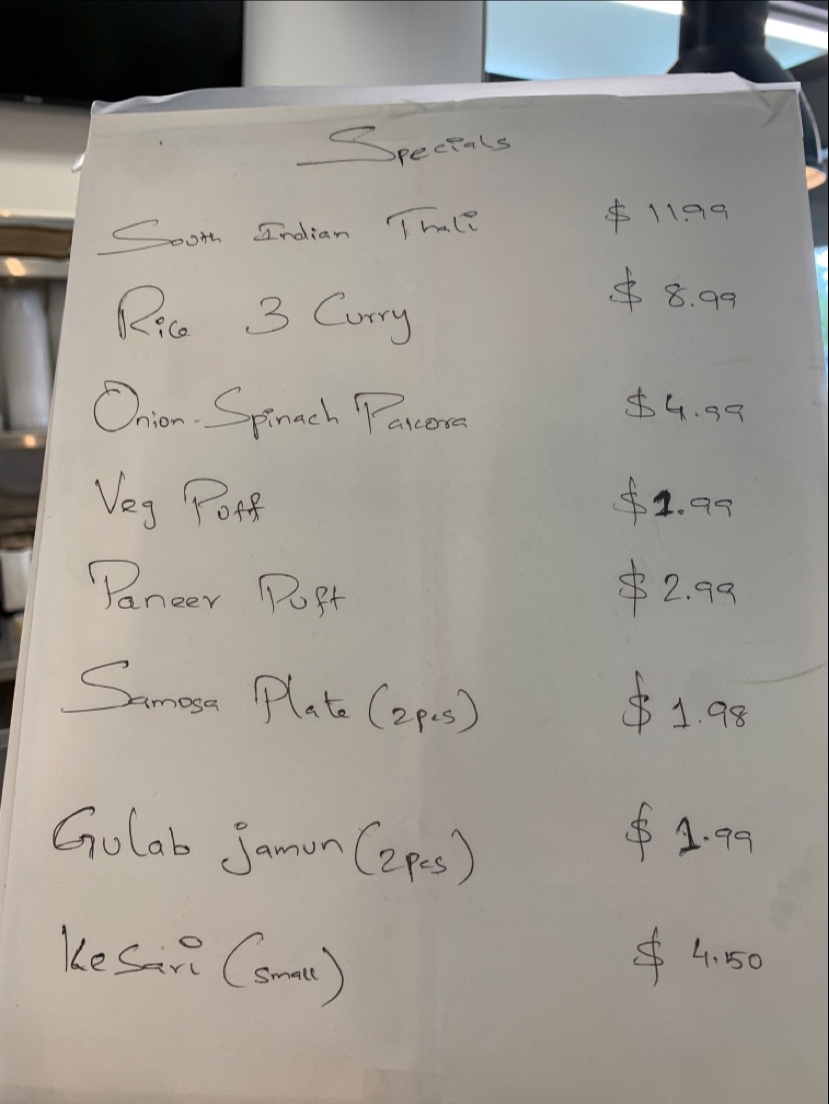 Specials
South Indian Thali $ 11.99
Rice 3 Curry $ 8.99
Onion-Spinach Pakora $4.99
Veg Puff $1.99
Paneer Puff $2.99
Samosa Plate (2pcs) $1.98
Gulab jamun (2pcs) $ 1.99
Kesari (small) $ 4.50